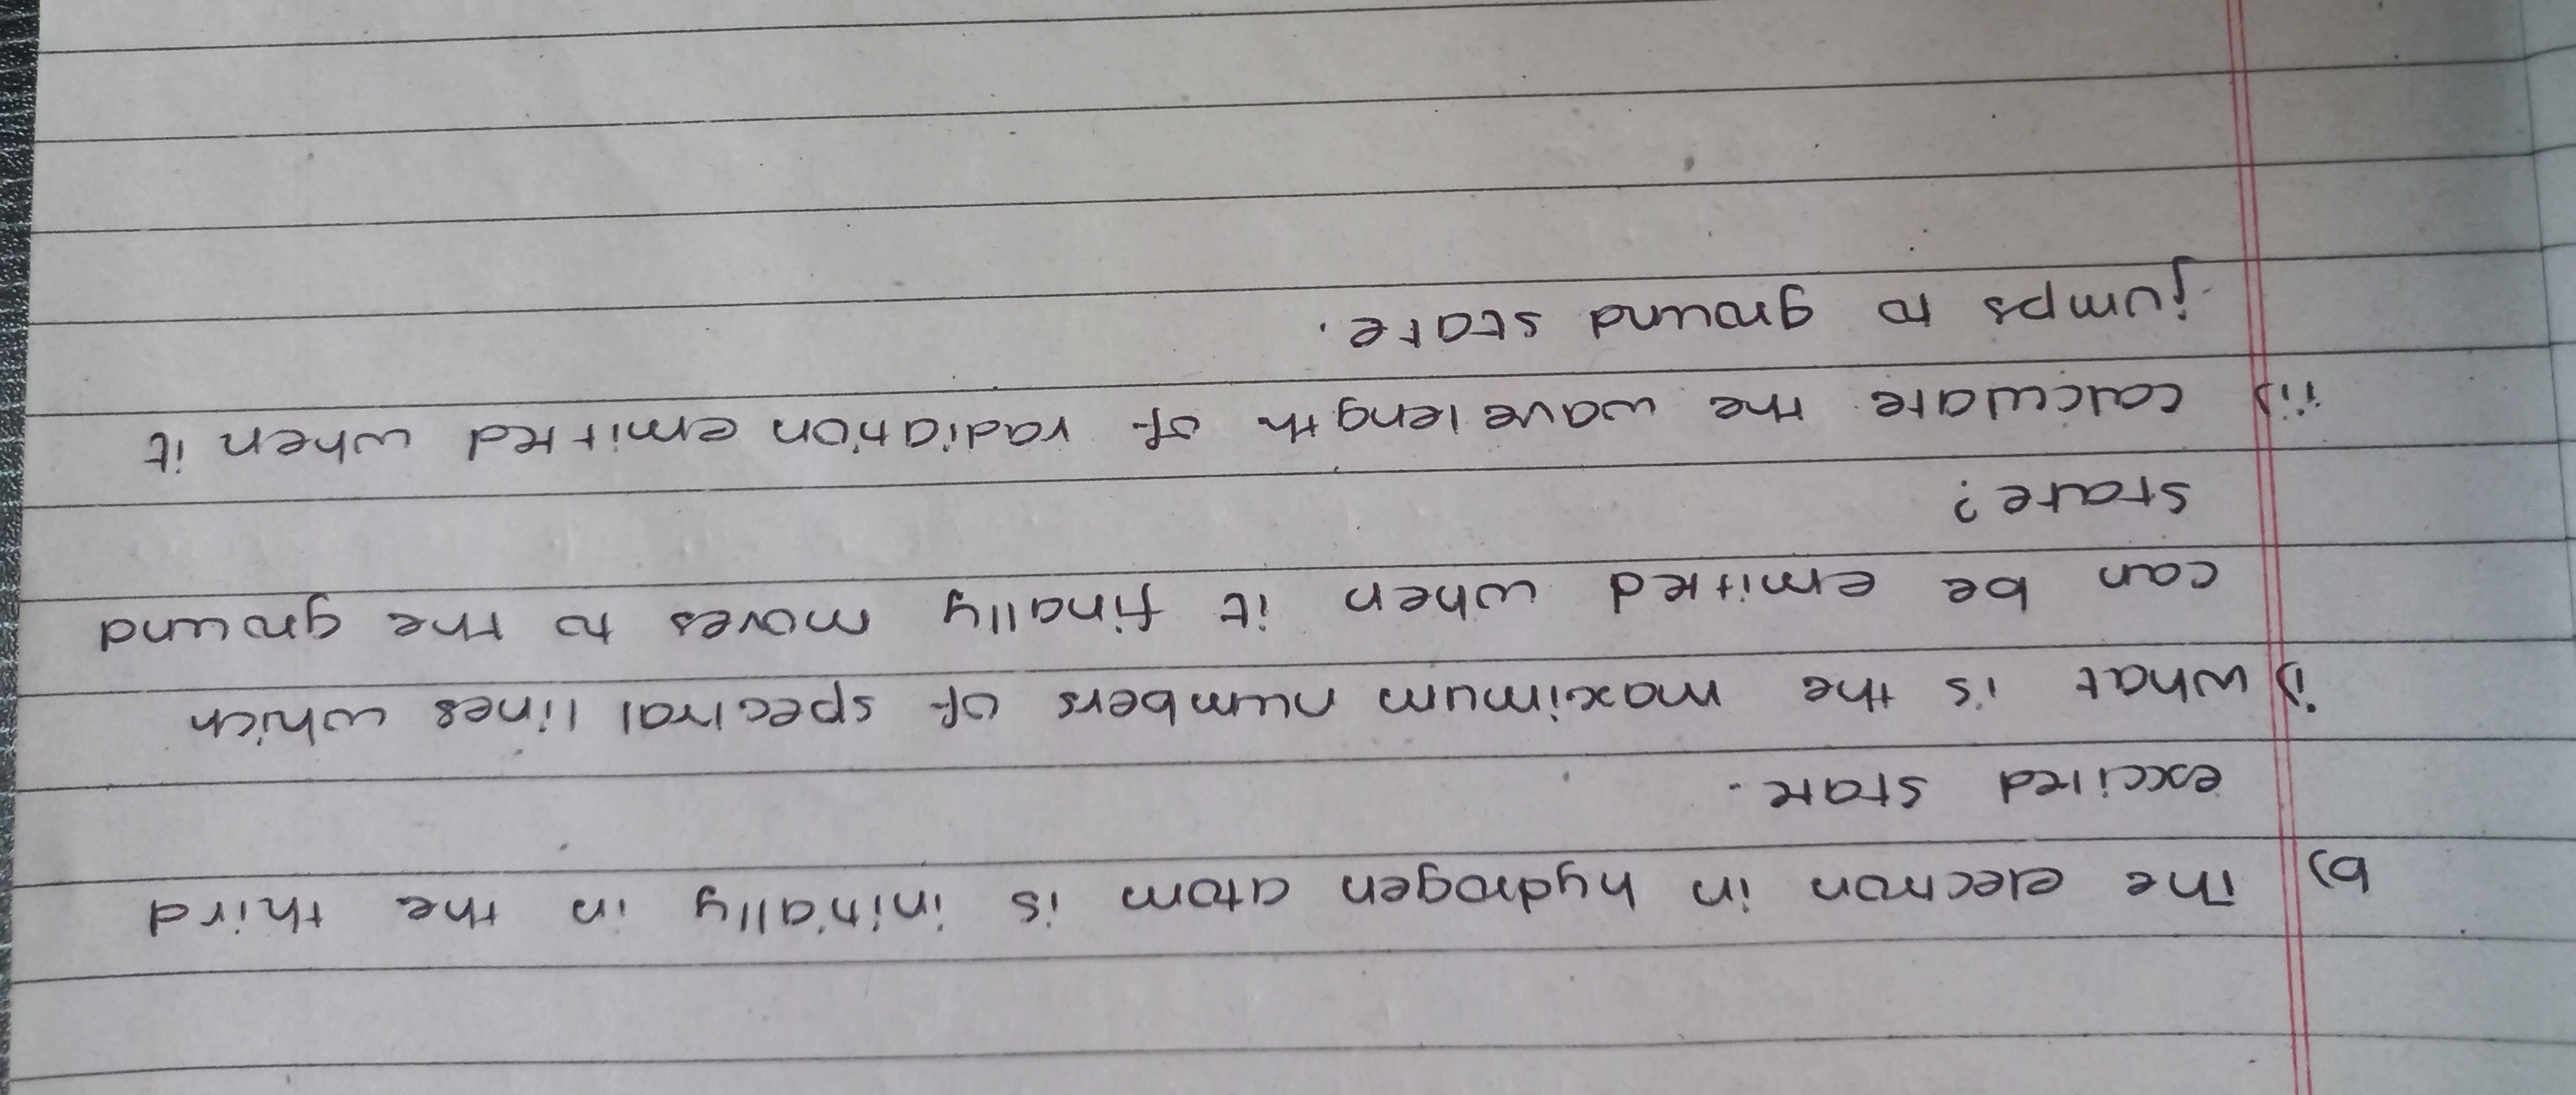 b) The electron in hydrogen atom is initially in the third
excited state.
i) what is the maximum numbers of spectral lines which
can be emitted when it finally moves to the ground
state?
ii) calculate the wavelength of radiation emitted when it
jumps to ground state.